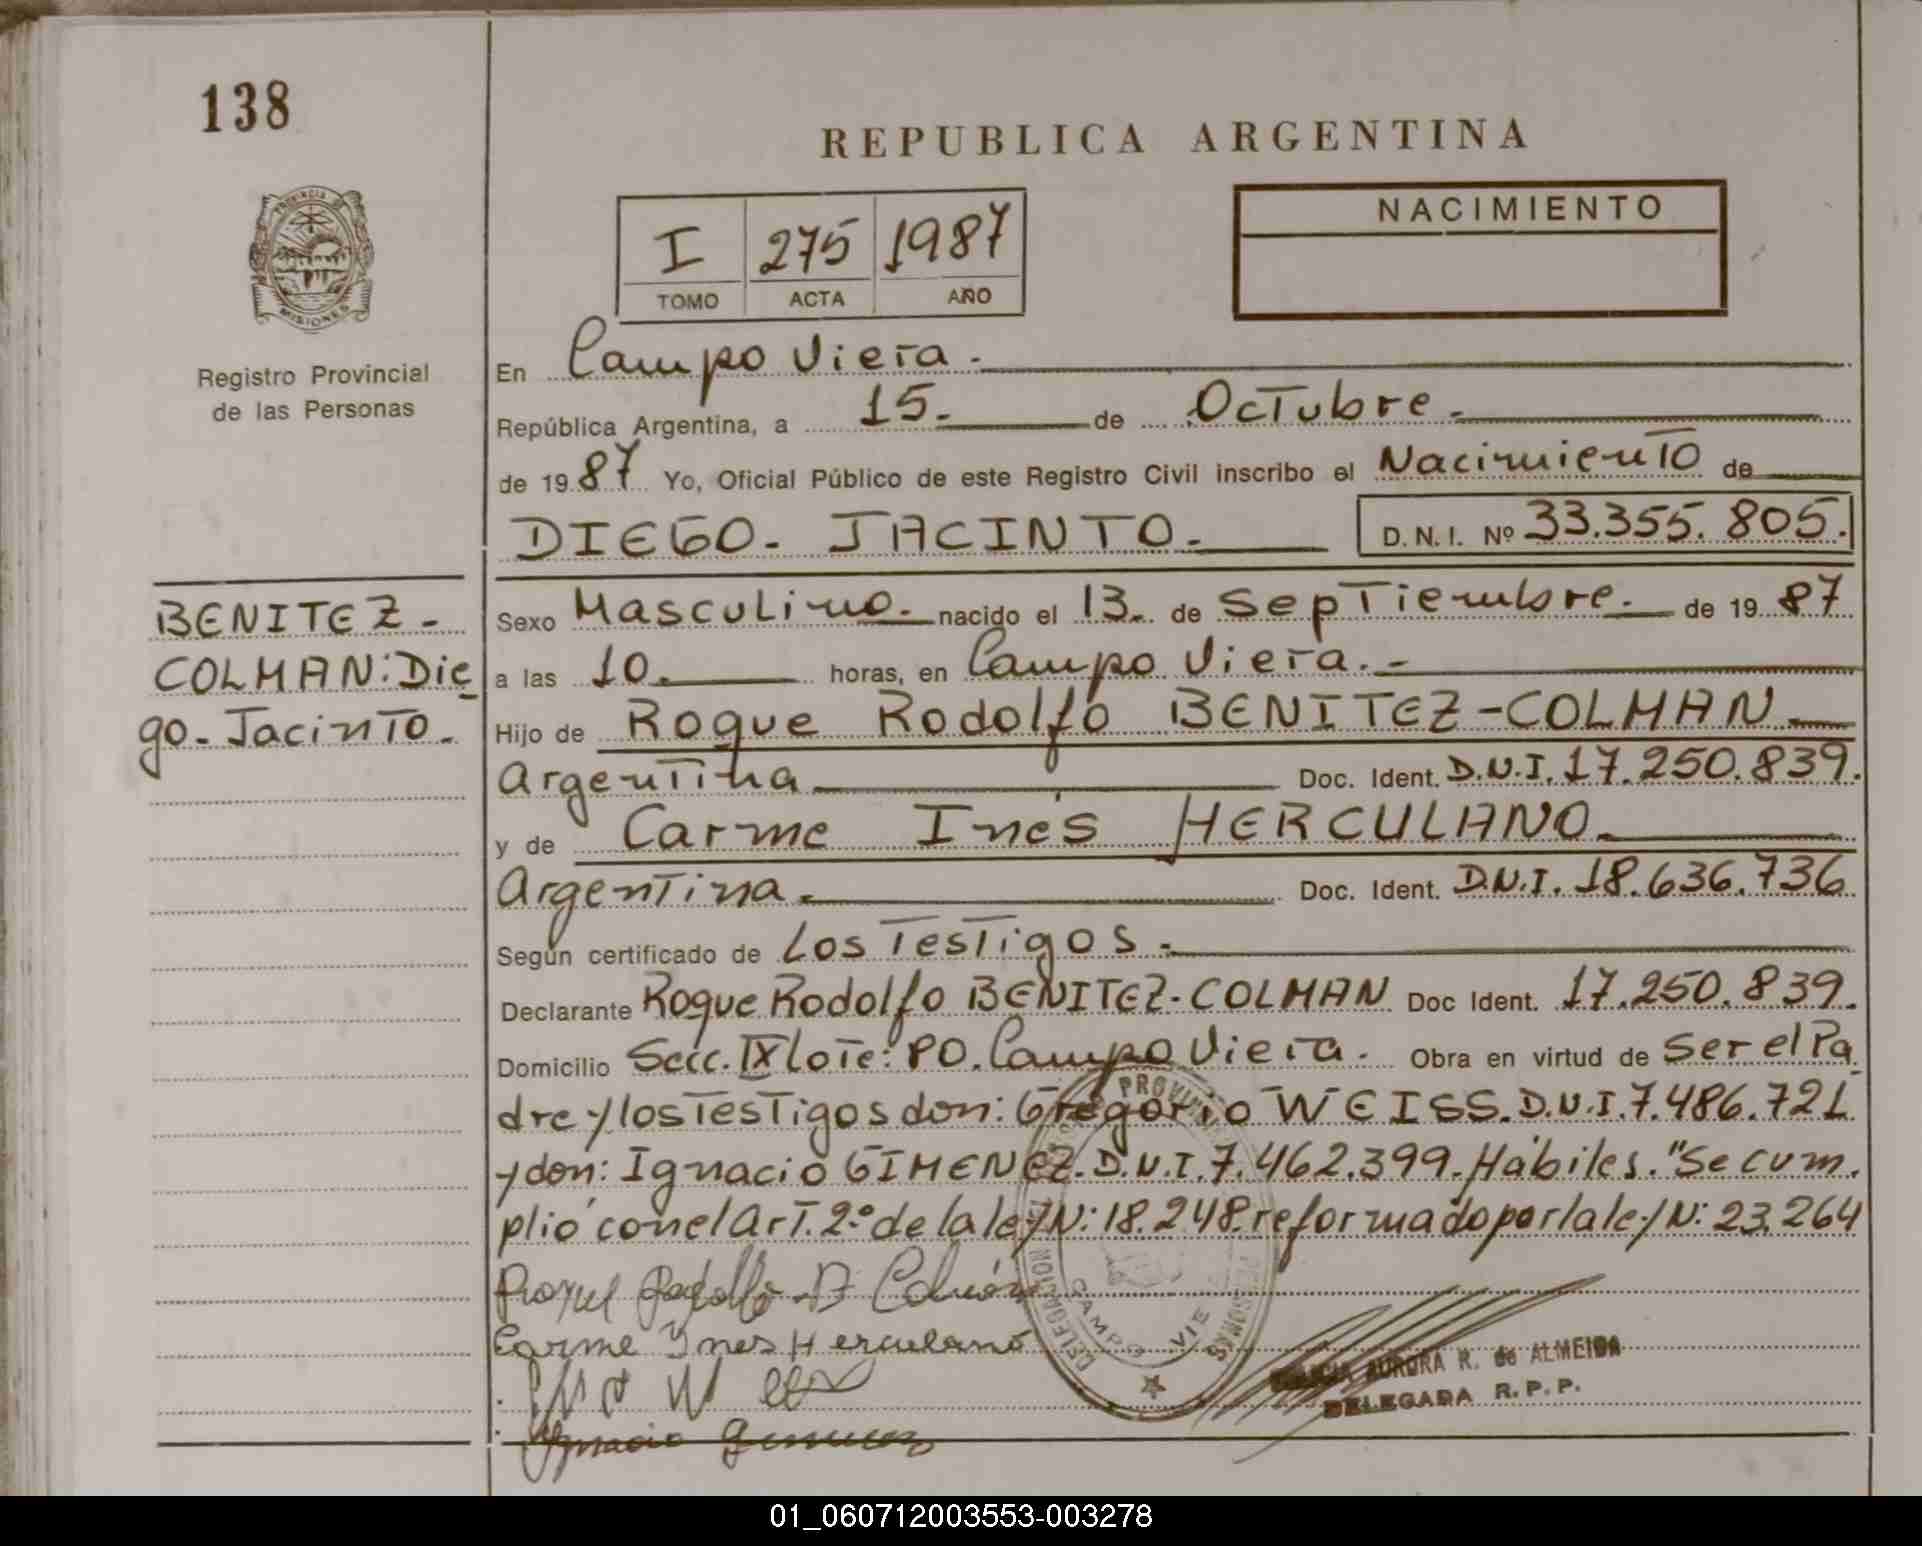 138
REPUBLICA ARGENTINA
PROVINCIA DE
MISIONES
Registro Provincial
de las Personas
I 275 1987
TOMO ACTA AÑO
NACIMIENTO
En Campo Viera.
República Argentina, a 15. de Octubre.
de 1987 Yo, Oficial Público de este Registro Civil inscribo el Nacimiento de
DIEGO- JACINTO. D.N.I. Nº 33.355.805.
BENITEZ-
COLMAN: Die
go-Jacinto.
Sexo Masculino. nacido el 13. de Septiembre. de 1987
a las 10. horas, en Campo Viera.-
Hijo de Roque Rodolfo BENITEZ-COLMAN
Argentina Doc. Ident. D.N.I. 17.250.839.
y de Carme Inés HERCULANO.
Argentina. Doc. Ident. D.N.I. 18.636.736
Según certificado de Los Testigos.
Declarante Roque Rodolfo BENITEZ-COLMAN Doc Ident. 17.250.839.
Domicilio Secc. IX Lote: 80. Campo Viera. Obra en virtud de Ser el Pa
dre y los Testigos don: Gregorio WEISS. D.N.I. 7.486.721
y don: Ignacio GIMENEZ. D.N.I. 7.462.399. Hábiles. "Se cum.
plió con el Art. 2.º de la ley N: 18.248. reformado por la ley N: 23.264
Carme Ynes Herculano
Ignacio Gimenez
DELEGACION CAMPO VIE
AURORA R. de ALMEIDA
DELEGADA R.P.P.
01_060712003553-003278